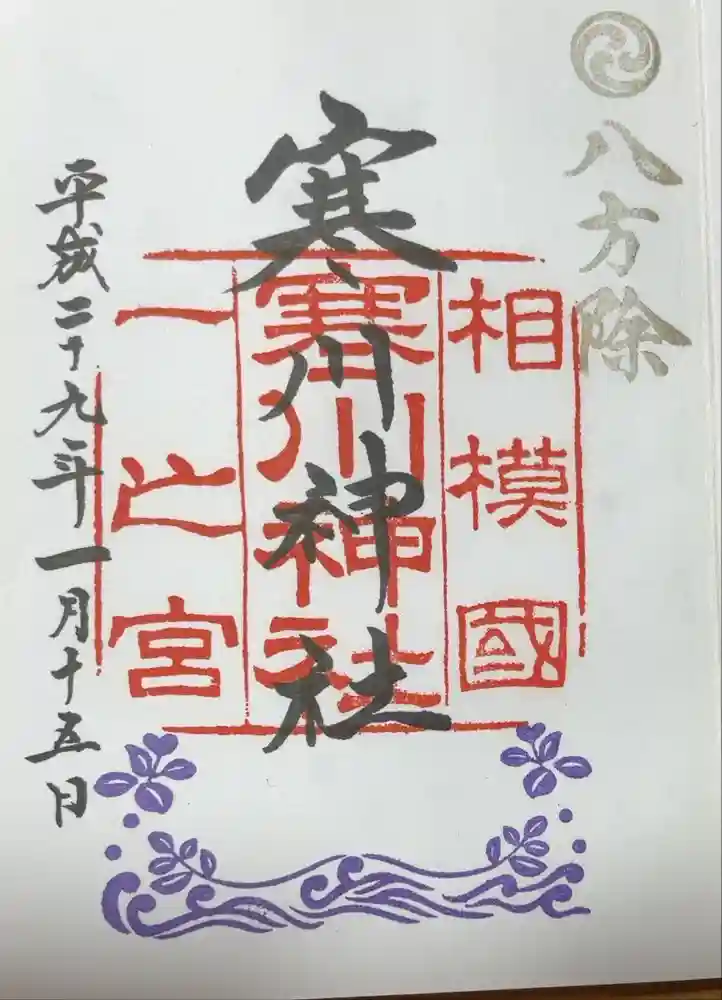 八方除
相模國
寒川神社
寒川神社
一之宮
平成二十九年一月十五日